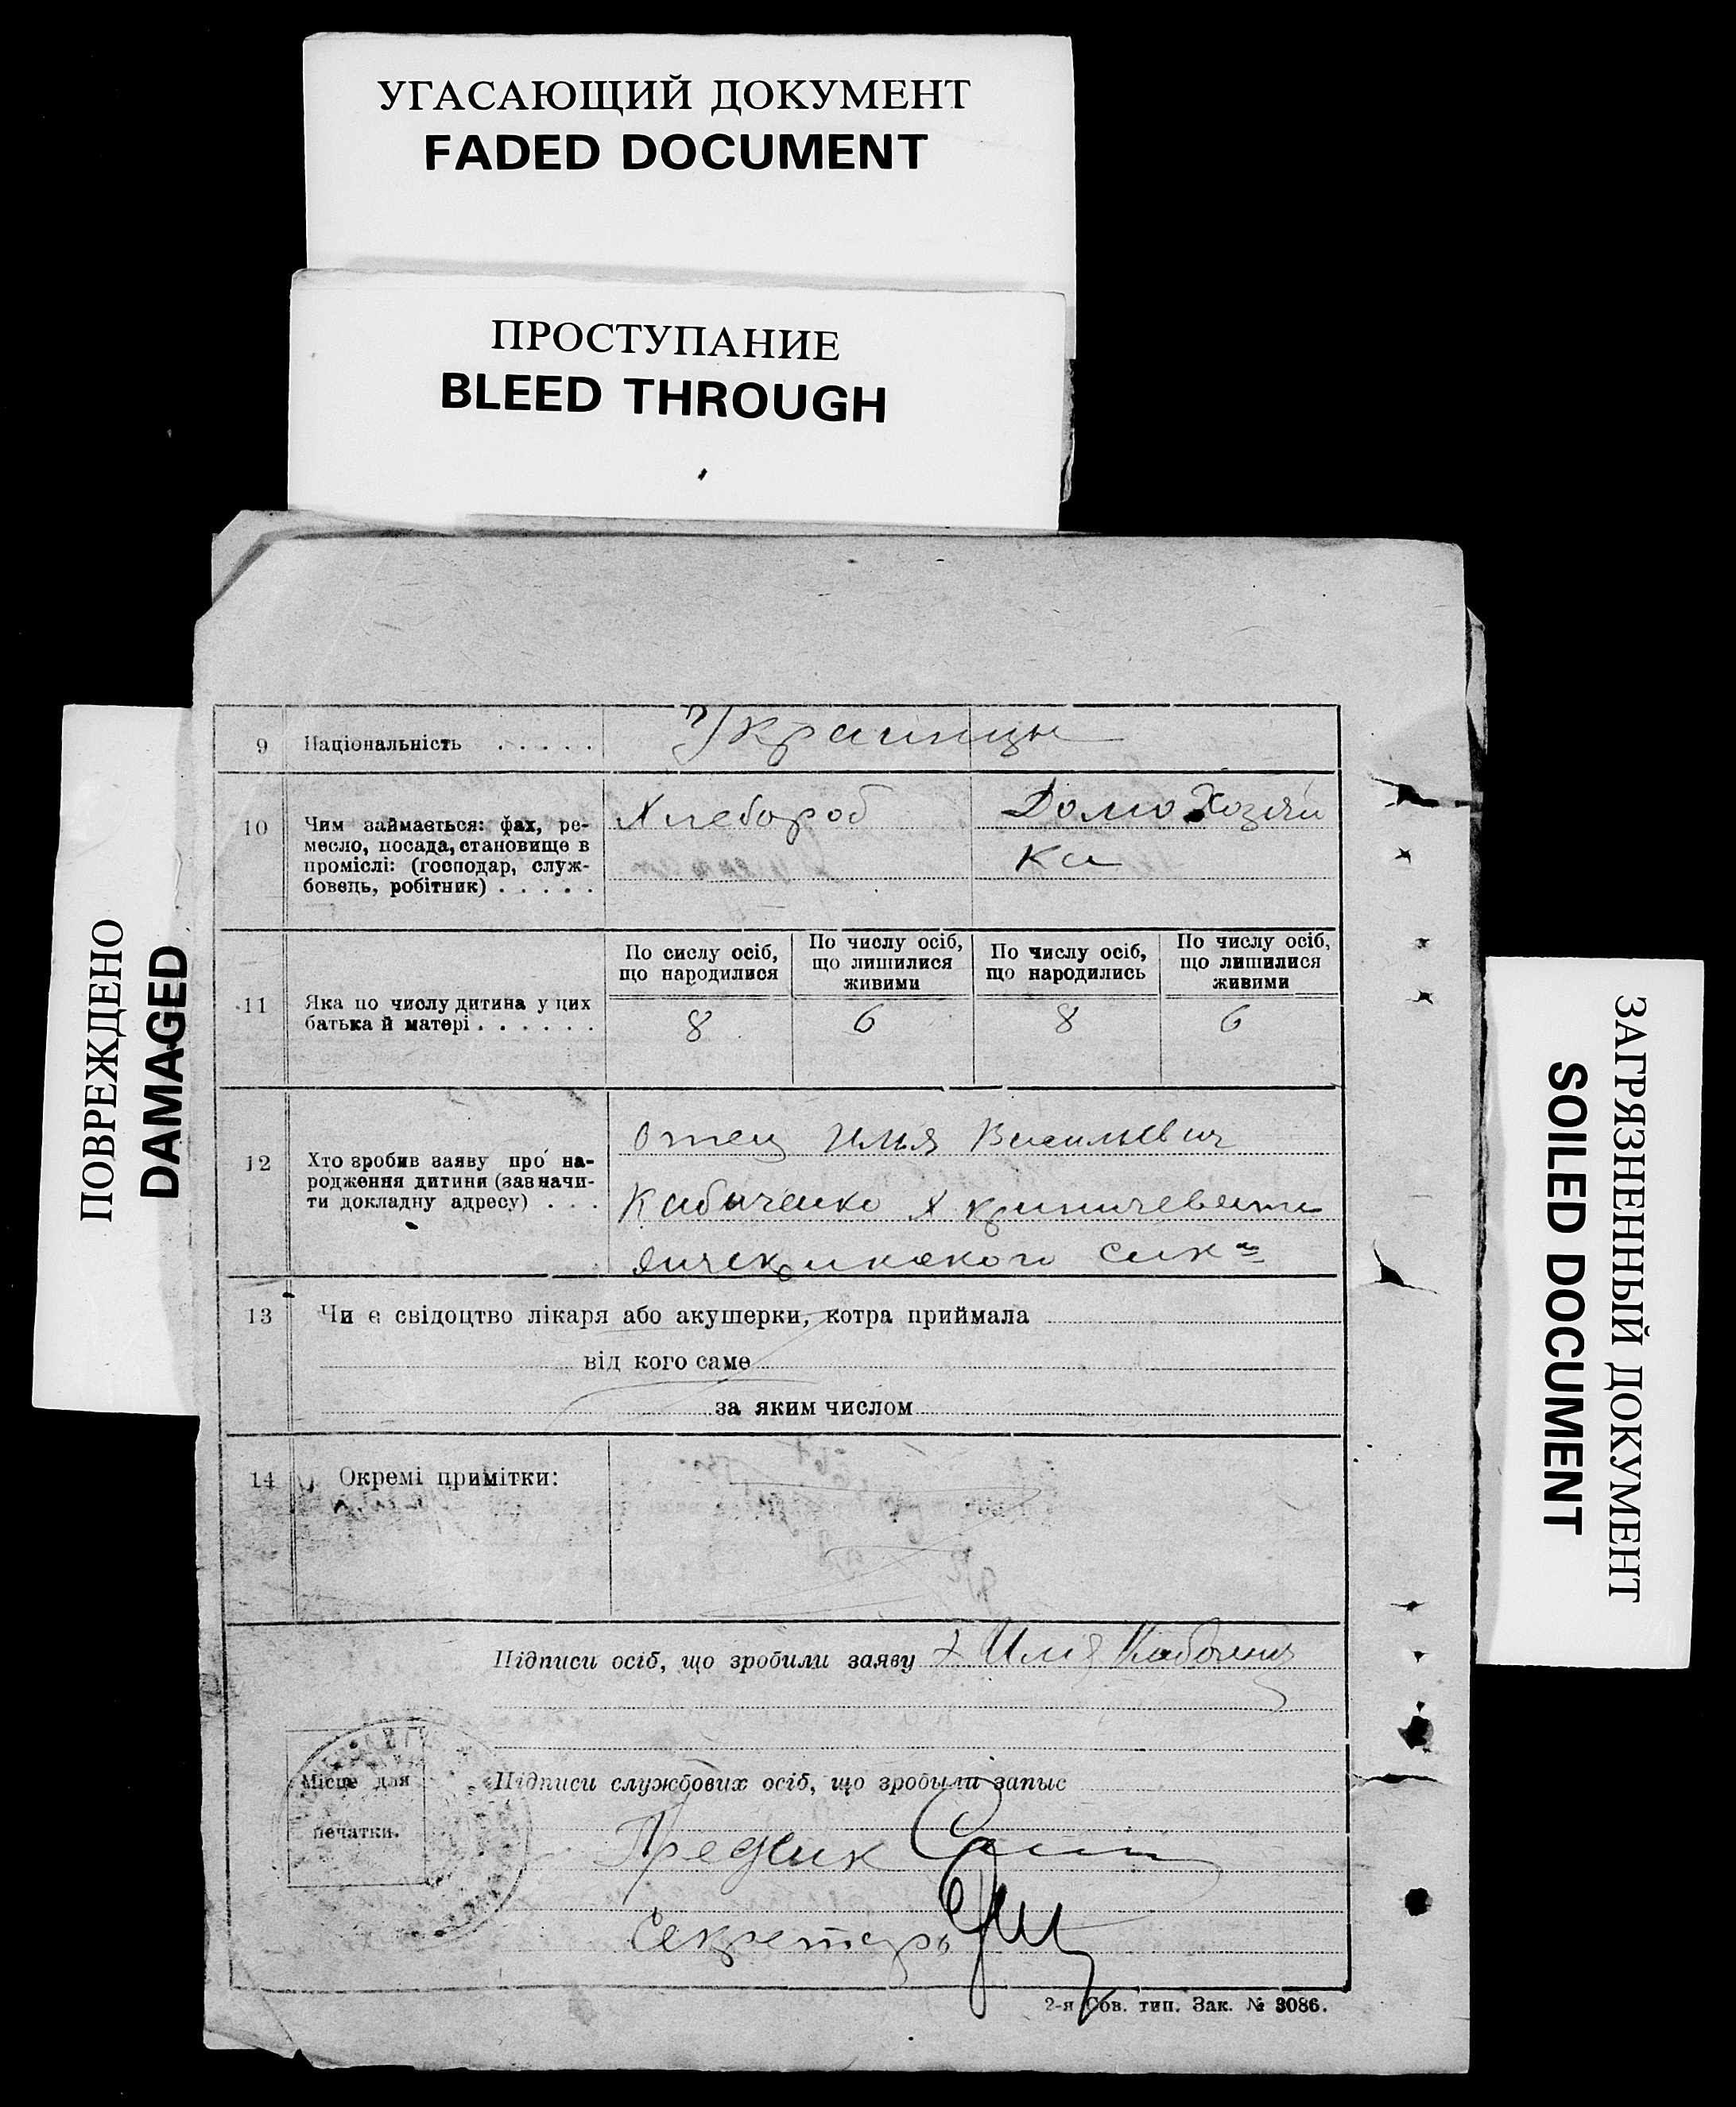 УГАСАЮЩИЙ ДОКУМЕНТ
FADED DOCUMENT
ПРОСТУПАНИЕ
BLEED THROUGH
ПОВРЕЖДЕНО
DAMAGED
ЗАГРЯЗНЕННЫЙ ДОКУМЕНТ
SOILED DOCUMENT
9 Національність . . . . . Украинцы
10 Чим займається: фах, ре-
месло, посада, становище в
проміслі: (господар, служ-
бовець, робітник) . . . . .
Хлебороб
Домохозяй
ка
По сислу осіб,
що народилися
По числу осіб,
що лишилися
живими
По числу осіб,
що народились
По числу осіб,
що лишилися
живими
11 Яка по числу дитина у цих
батька й матері . . . . . .
8 6 8 6
12 Хто зробив заяву про на-
родження дитини (зазначи-
ти докладну адресу) . . .
Отец Илья Васильевич
Кабиченко х
13 Чи є свідоцтво лікаря або акушерки, котра приймала
від кого саме
за яким числом
14 Окремі примітки:
Підписи осіб, що зробили заяву Илья
Місце для
печатки.
Підписи службових осіб, що зробыли запыс
Предсик
Секретарь
2-я Сов. тип. Зак. № 3086.